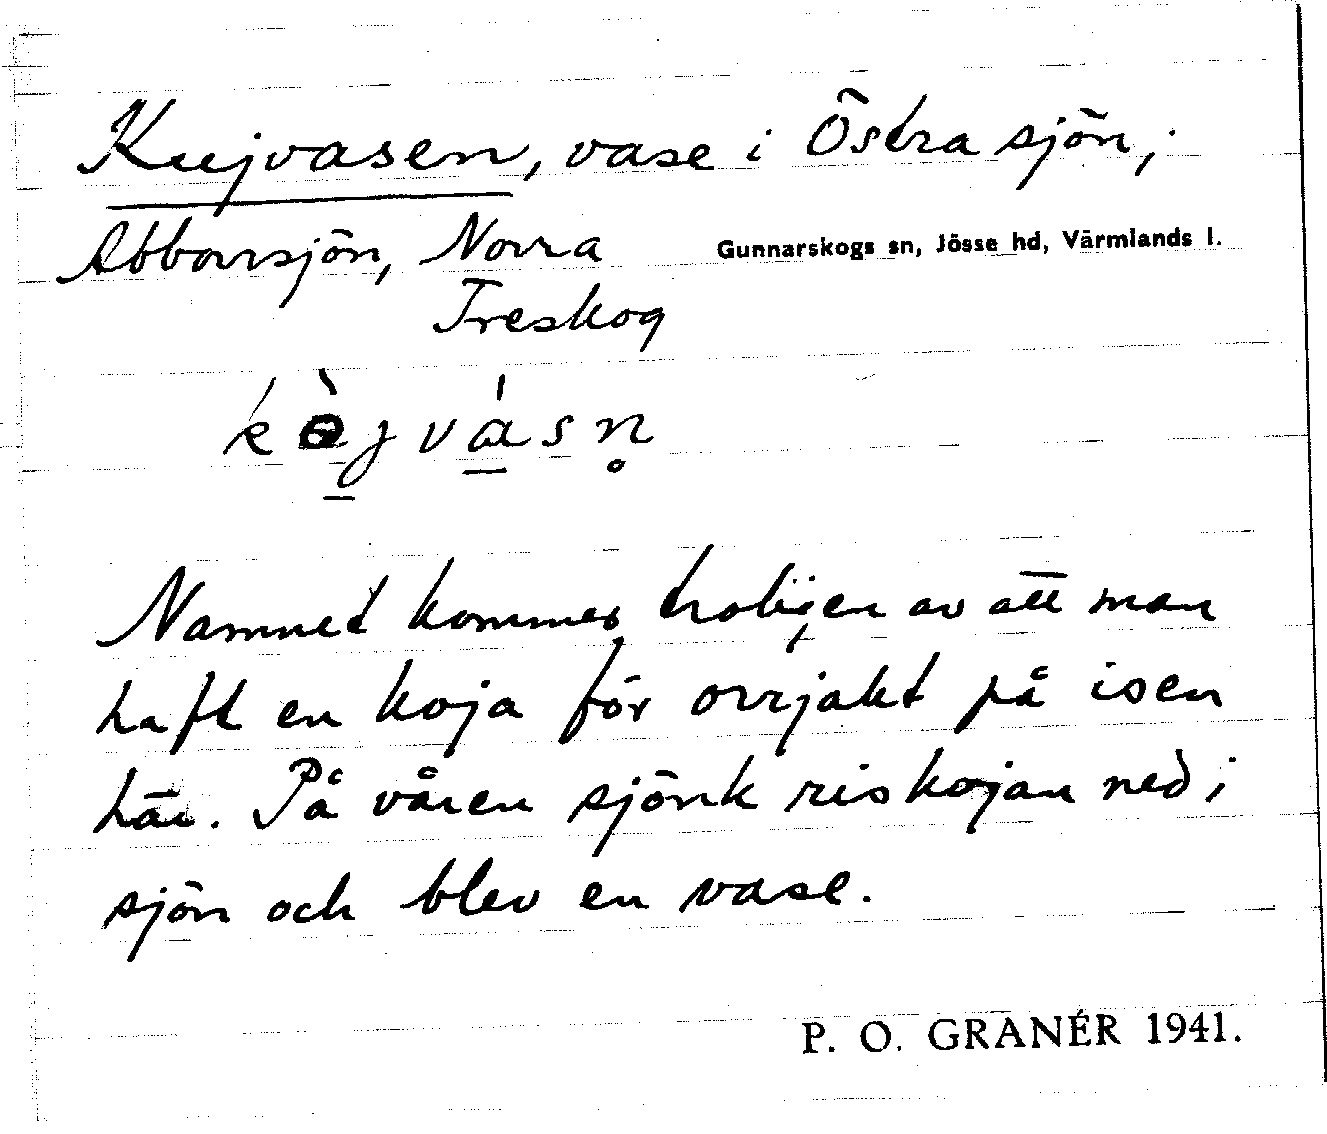 Kujvasen, vase i Östra sjön,
Abborrsjön, Norra
Gunnarskogs sn, Jösse hd, Värmlands l.
Treskog
kɵ̀jvásn̥
Namnet kommer troligen av att man
haft en koja för orrjakt på isen
här. På våren sjönk riskojan ned i
sjön och blev en vase.
P. O. GRANÉR 1941.